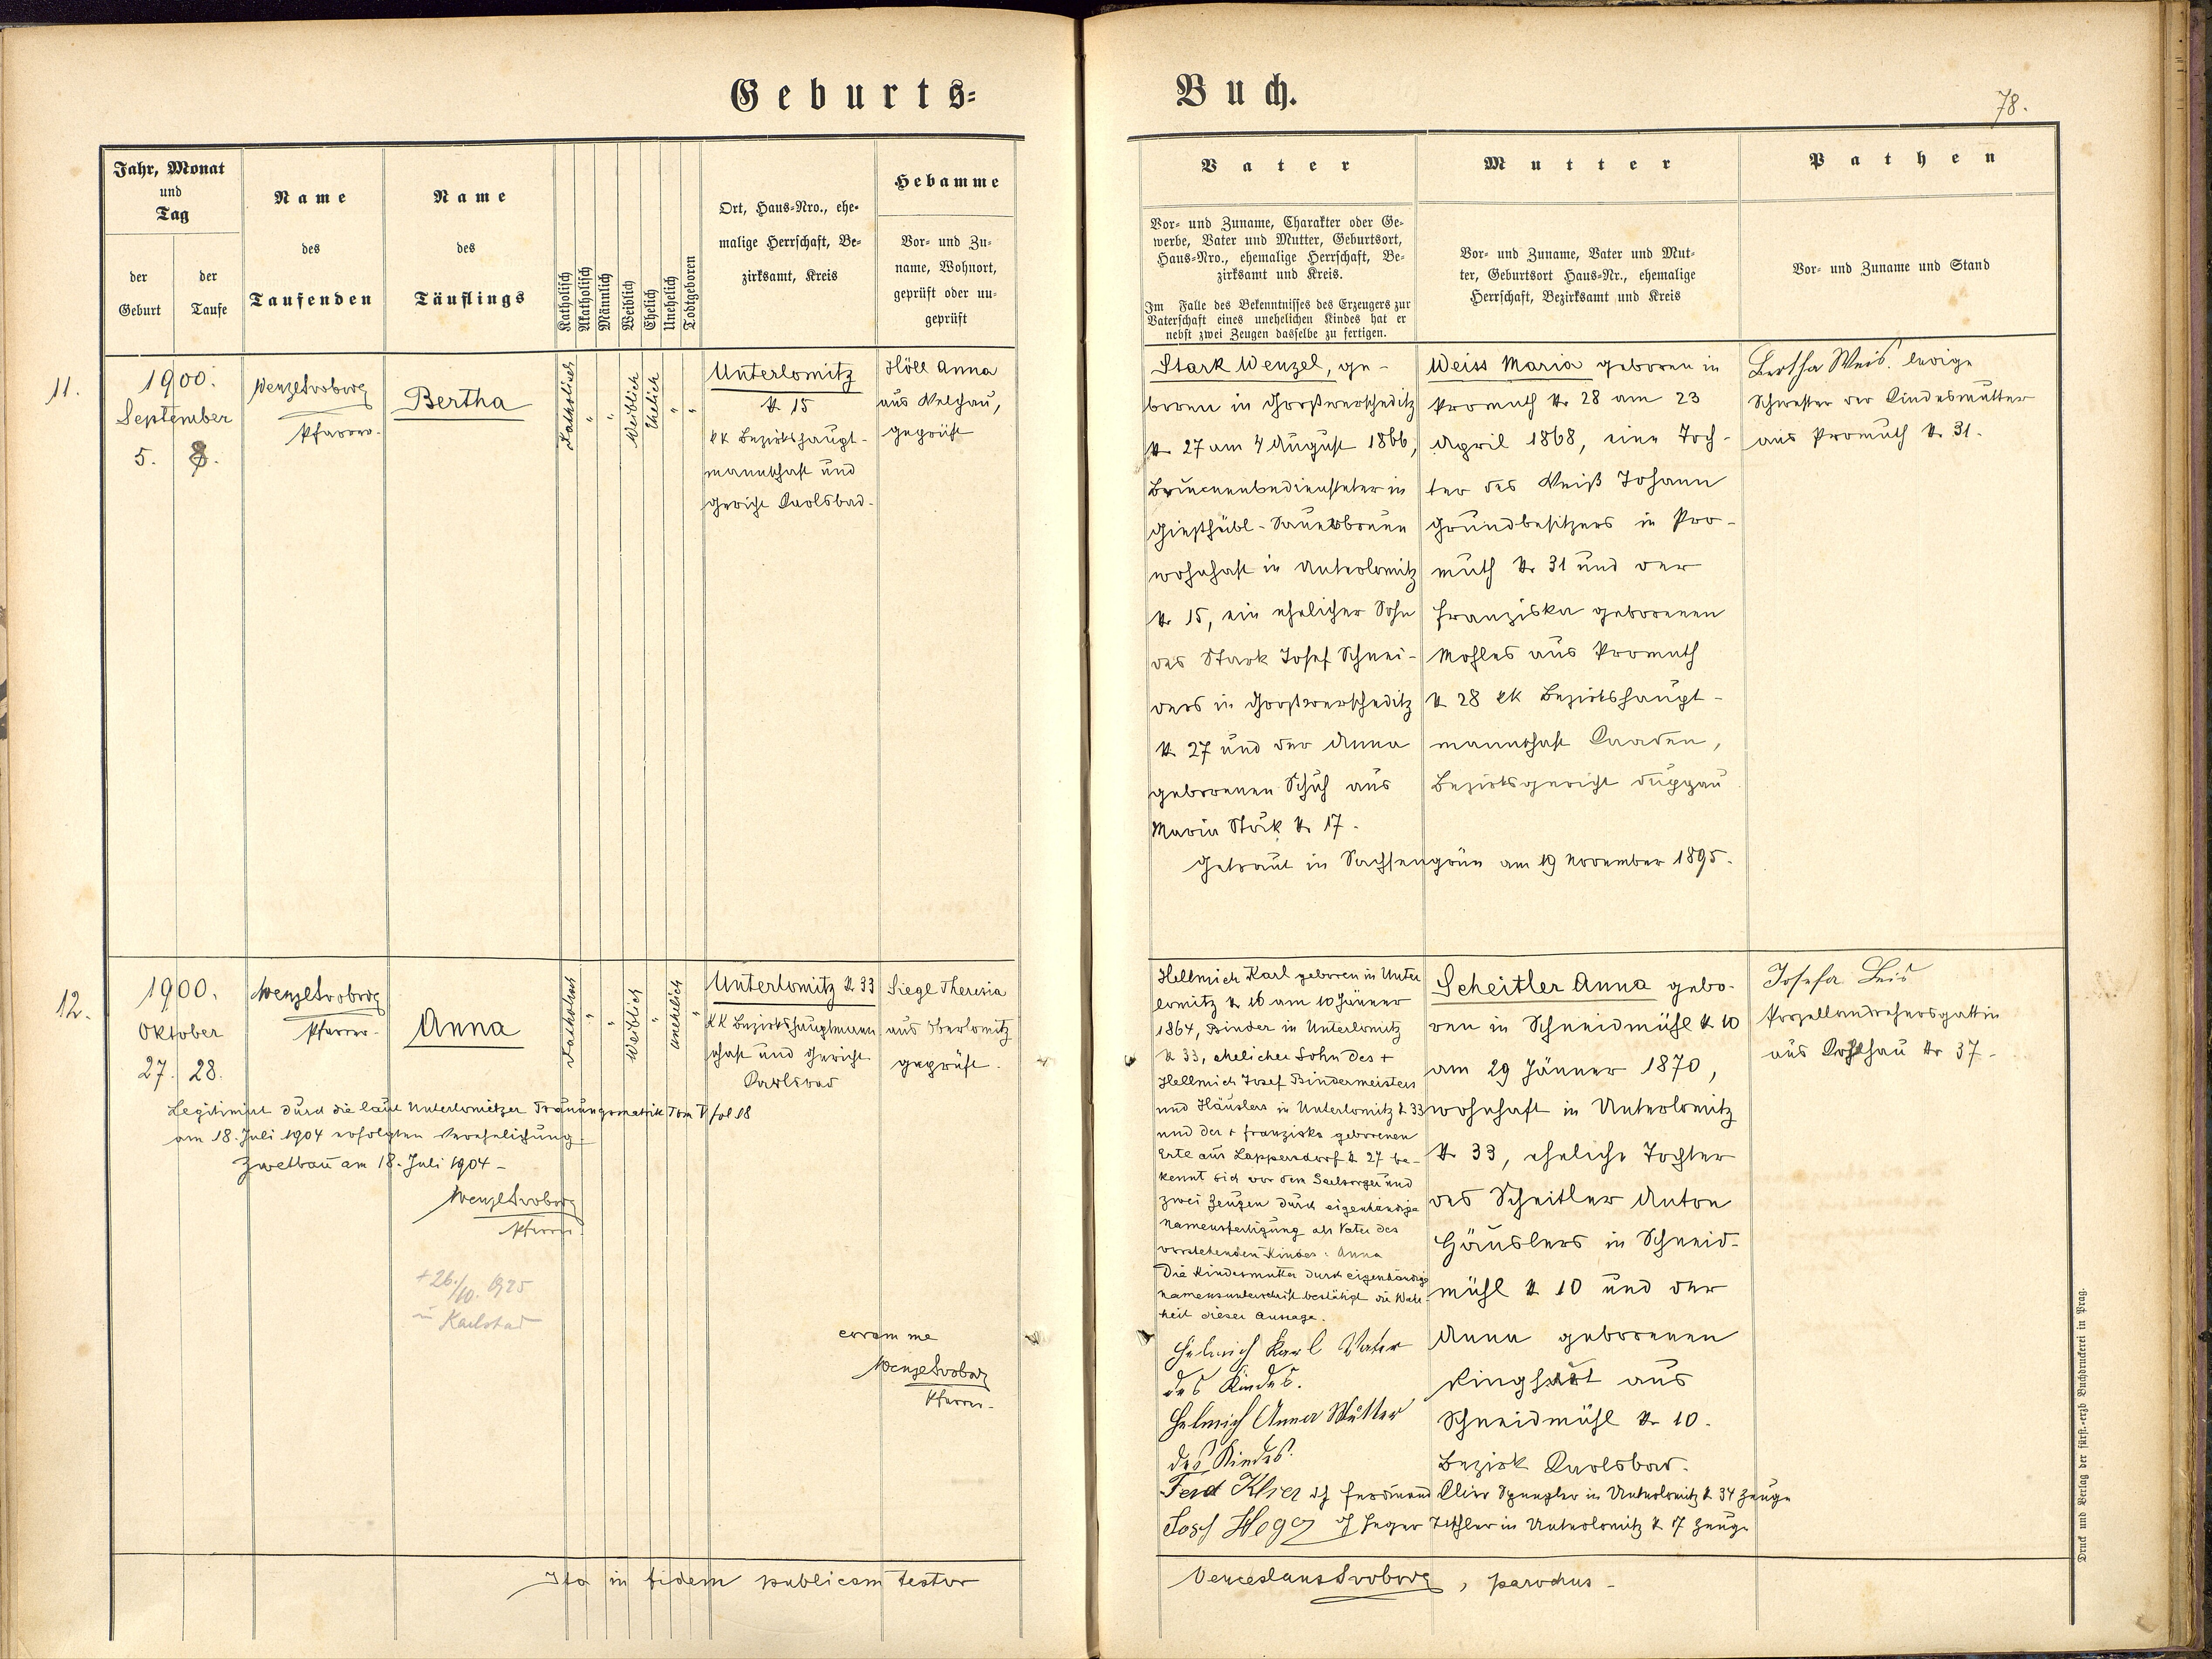 Geburts=
Buch.
78.
Jahr, Monat
und
Tag
der
Geburt
der
Taufe
Name
des
Taufenden
Name
des
Täuflings
Katholisch
Akatholisch
Männlich
Weiblich
Ehelich
Unehelich
Todtgeboren
Ort, Haus=Nro., ehe=
malige Herrschaft, Be=
zirksamt, Kreis
Hebamme
Vor= und Zu=
name, Wohnort,
geprüft oder un=
geprüft
Vater
Vor= und Zuname, Charakter oder Ge=
werbe, Vater und Mutter, Geburtsort,
Haus=Nro., ehemalige Herrschaft, Be=
zirksamt und Kreis.
Im Falle des Bekenntnisses des Erzeugers zur
Vaterschaft eines unehelichen Kindes hat er
nebst zwei Zeugen dasselbe zu fertigen.
Mutter
Vor= und Zuname, Vater und Mut=
ter, Geburtsort Haus=Nr., ehemalige
Herrschaft, Bezirksamt und Kreis
Pathen
Vor= und Zuname und Stand
11.
1900.
September
5. 8.
Wenzel Svoboda
Pfarrer.
Bertha
Katholisch
"
"
Weiblich
Ehelich
"
"
Unterlomitz
N 15
kk Bezirkshaupt-
mannschaft und
Gericht Karlsbad.
Höll Anna
aus Welchau,
geprüft
Stark Wenzel, ge-
boren in Großwerscheditz
N. 27 am 4 August 1866,
Brunnenbediensteter in
Gießhübl-Sauerbrunn
wohnhaft in Unterlomitz
N. 15, ein ehelicher Sohn
des Stark Josef Schnei-
ders in Großwerscheditz
N 27 und der Anna
geborenen Schuh aus
Maria Stock N. 17.
Getraut in Sachsengrün am 19 November 1895.
Weiss Maria geboren in
Promuth N. 28 am 23
April 1868, eine Toch-
ter des Weiß Johann
Grundbesitzers in Pro-
muth N. 31 und der
Franziska geborenen
Mohles aus Promuth
N 28 kk Bezirkshaupt-
mannschaft Kaaden,
Bezirksgericht Duppau
Bertha Weis ledige
Schwester der Kindesmutter
aus Promuth N. 31.
12.
1900.
Oktober
27. 28.
Wenzel Svoboda
Pfarrer.
Anna
Katholisch
"
"
Weiblich
"
unehelich
"
Unterlomitz N. 33
kk Bezirkshauptmann
schaft und Gericht
Karlsbad
Siegl Theresia
aus Oberlomitz
geprüft.
Legitimirt durch die laut Unterlomitzer Trauungsmatrik Tom V fol 18
am 18. Juli 1904 erfolgten Verehelichung.
Zwetbau am 18. Juli 1904 -
Wenzel Svoboda
Pfarrer.
+ 26./10. 1925
in Karlsbad
coram me
Wenzel Svoboda
Pfarrer.
Hellmich Karl geboren in Unter
lomitz N 16 am 10 Jänner
1864, Binder in Unterlomitz
N 33, ehelicher Sohn des +
Hellmich Josef Bindermeisters
und Häuslers in Unterlomitz N. 33
und der + Franziska geborenen
Erte aus Lappersdorf N 27 be-
kennt sich vor dem Seelsorger und
zwei Zeugen durch eigenhändige
Namensfertigung als Vater des
vorstehenden Kindes: Anna
Die Kindesmutter durch eigenhändige
Namensunterschrift bestätigt die Wahr-
heit dieser Aussage.
Helmich Karl Vater
des Kindes.
Helmich Anna Mutter
des Kindes.
Ferd Klier d/ Ferdinand Klier Spengler in Unterlomitz N 34 Zeuge
Josef Heger d/ Heger Tischler in Unterlomitz N 7 Zeuge
Scheitler Anna gebo-
ren in Schneidmühl N 10
am 29 Jänner 1870,
wohnhaft in Unterlomitz
N. 33, eheliche Tochter
des Scheitler Anton
Häuslers in Schneid-
mühl N 10 und der
Anna geborenen
aus
Schneidmühl N. 10.
Bezirk Karlsbad.
Josefa Leis
Porzellandrehersgattin
aus N. 37.
Ita in fidem publicam testor
Venceslaus Svoboda, parochus.
Druck und Verlag der fürst.=erzb Buchdruckerei in Prag.